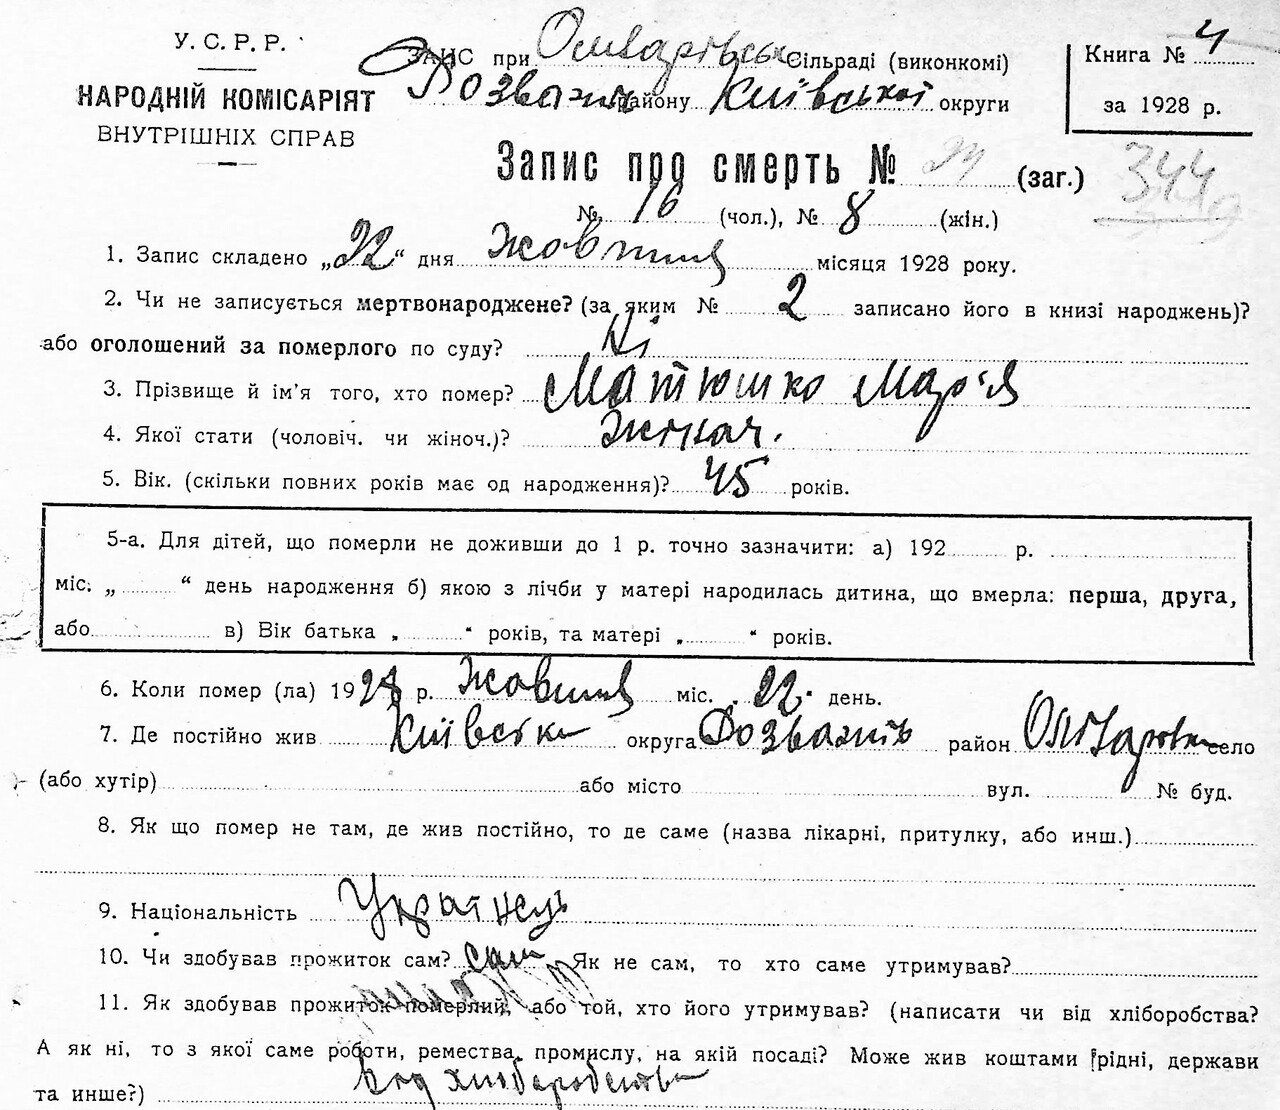 У. С. Р. Р.
НАРОДНІЙ КОМІСАРІЯТ
ВНУТРІШНІХ СПРАВ
ЗАГС при Сільраді (виконкомі)
Розважів району Київської округи
Книга № 4
за 1928 р.
Запис про смерть № 24 (заг.)
344
№ 16 (чол.), № 8 (жін.)
1. Запис складено „22“ дня жовтня місяця 1928 року.
2. Чи не записується мертвонароджене? (за яким № 2 записано його в книзі народжень)?
або оголошений за померлого по суду? Ні
3. Прізвище й ім'я того, хто помер? Матюшко Мар'я
4. Якої стати (чоловіч. чи жіноч.)? жіноч.
5. Вік. (скільки повних років має од народження)? 45 років.
5-а. Для дітей, що померли не доживши до 1 р. точно зазначити: а) 192 р.
міс. „ “ день народження б) якою з лічби у матері народилась дитина, що вмерла: перша, друга,
або в) Вік батька „ “ років, та матері „ “ років.
6. Коли помер (ла) 1928 р. жовтня міс. 22 день.
7. Де постійно жив Київська округа Розважів район село
(або хутір) або місто вул. № буд.
8. Як що помер не там, де жив постійно, то де саме (назва лікарні, притулку, або инш.)
9. Національність Українець
10. Чи здобував прожиток сам? сам Як не сам, то хто саме утримував?
11. Як здобував прожиток померлий, або той, хто його утримував? (написати чи від хліборобства?
А як ні, то з якої саме роботи, ремества, промислу, на якій посаді? Може жив коштами рідні, держави
та инше?) Від хліборобства